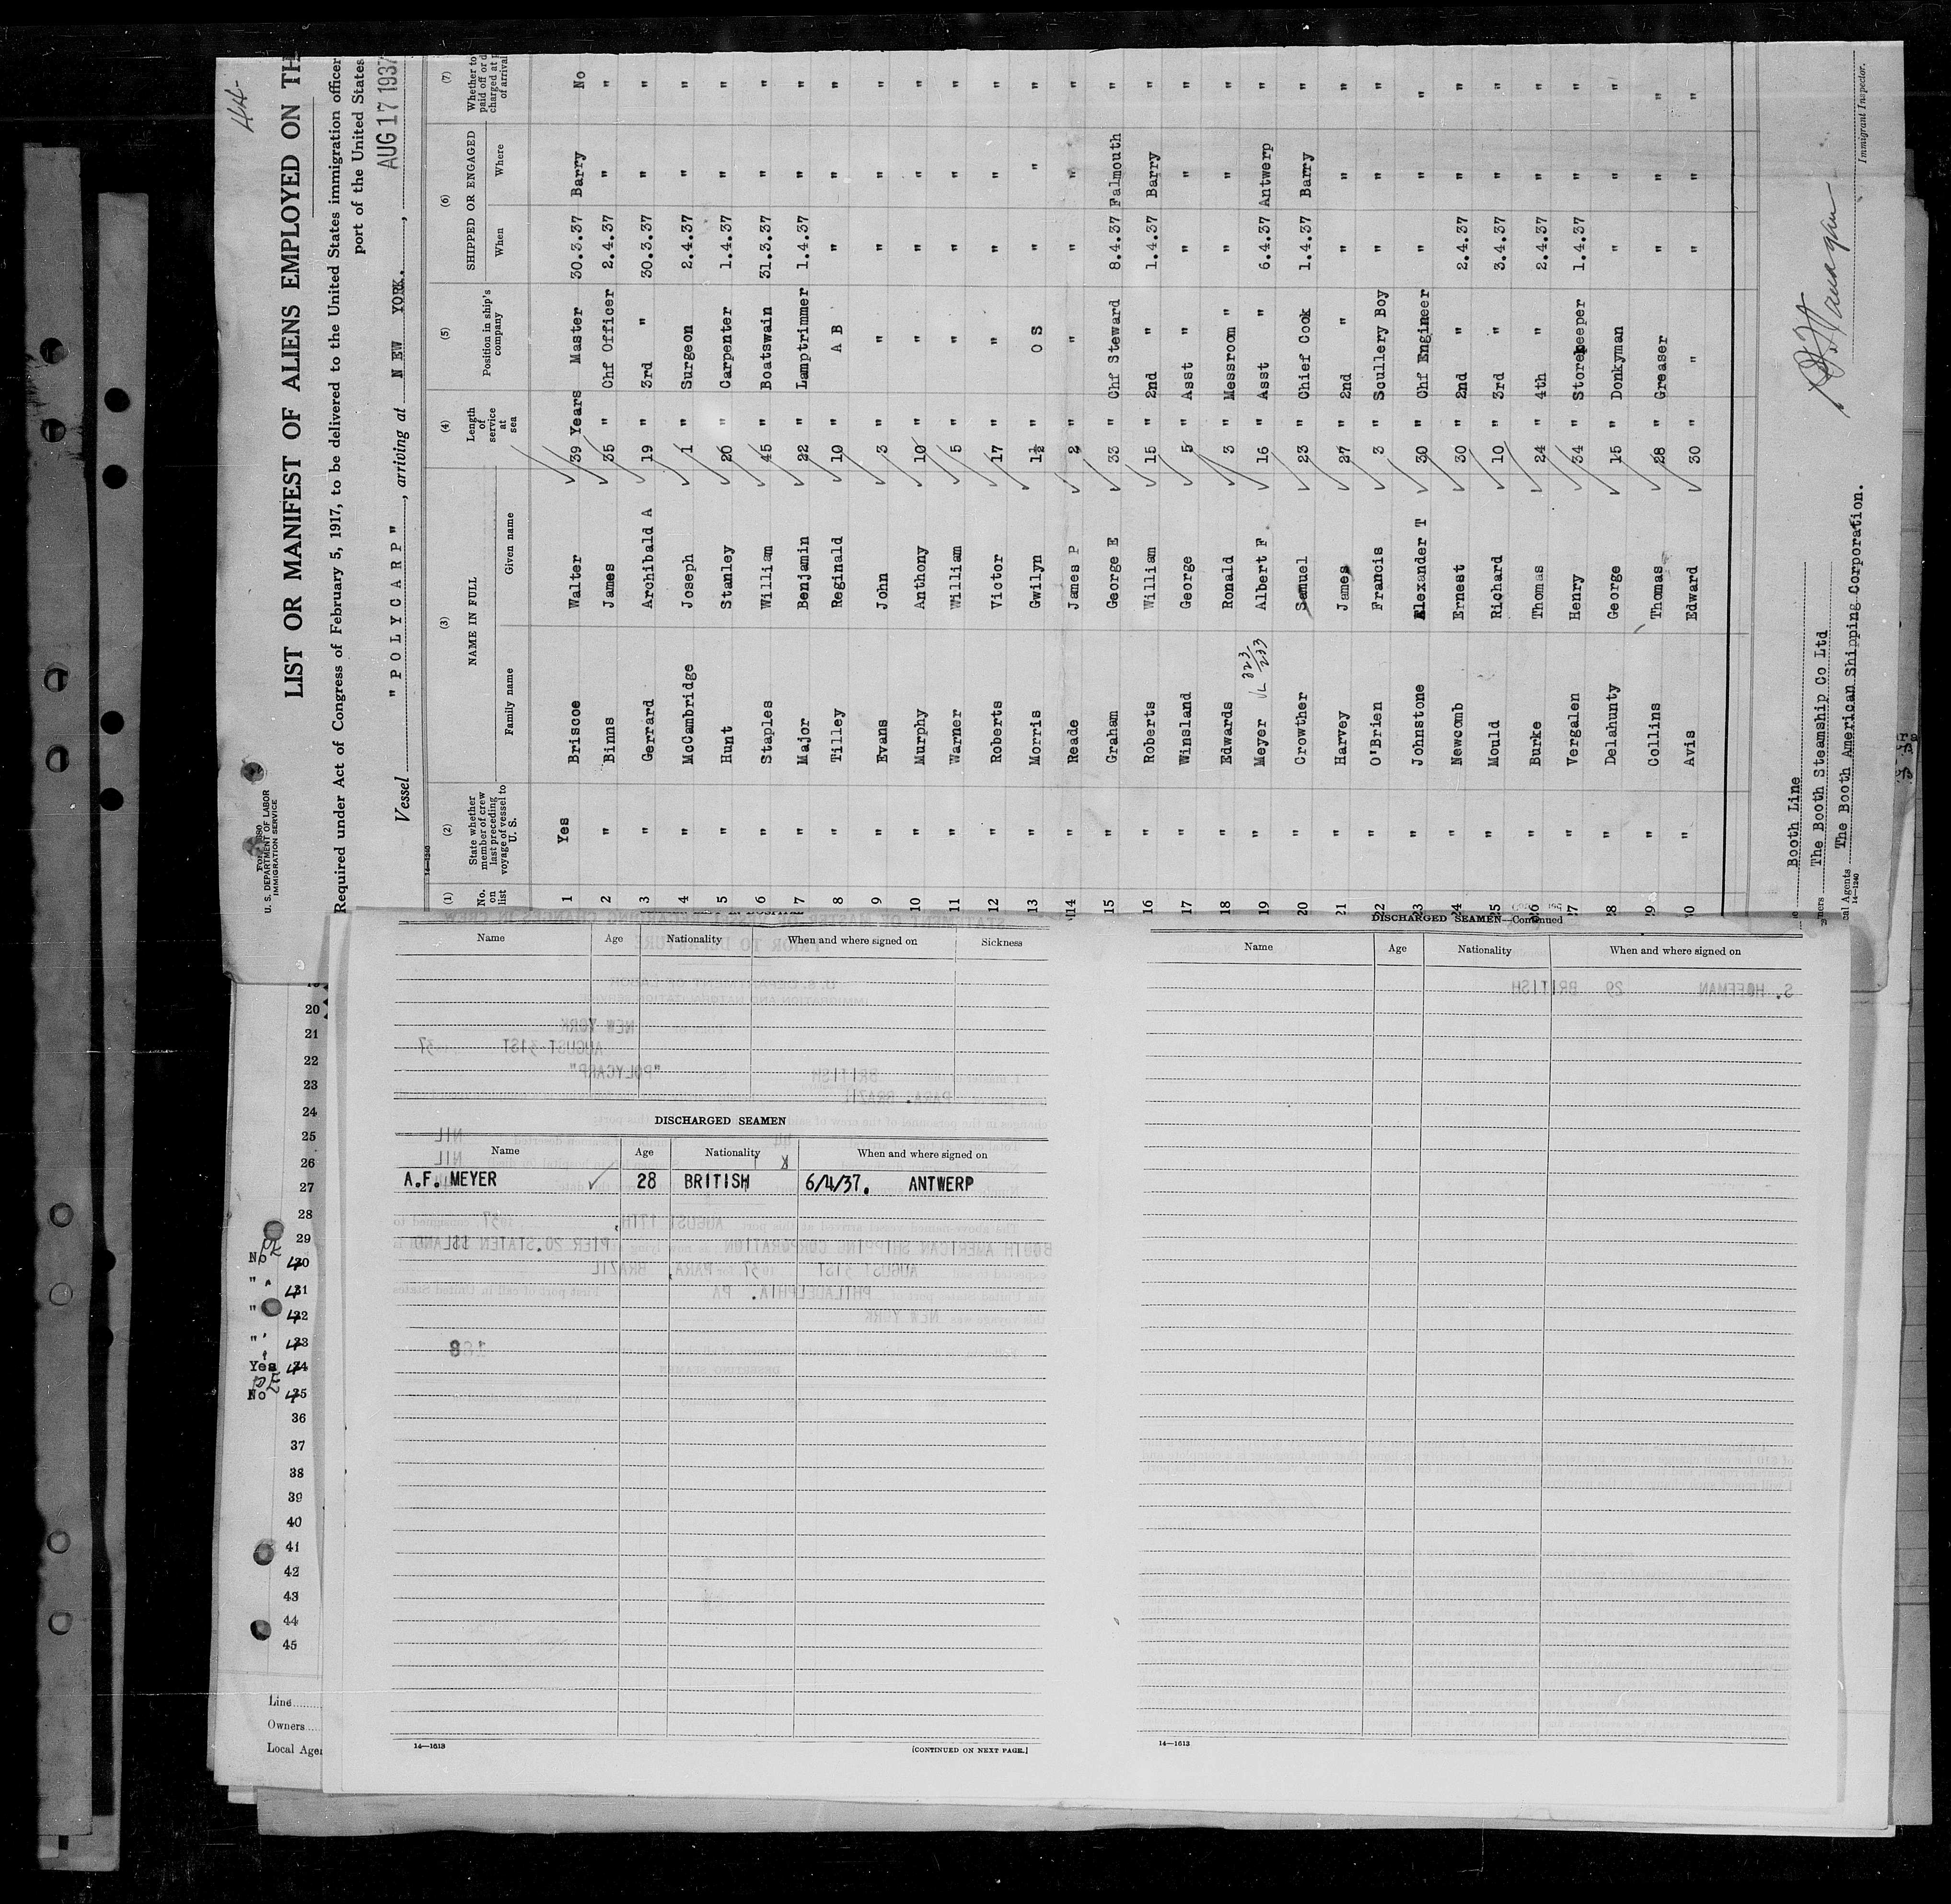 44
U. S. DEPARTMENT OF LABOR
IMMIGRATION SERVICE
LIST OR MANIFEST OF ALIENS EMPLOYED ON TH
Required under Act of Congress of February 5, 1917, to be delivered to the United States immigration officer
port of the United States
Vessel "POLYCARP", arriving at NEW YORK., AUG 17 1937
14-1240
(1) (2) (3) (4) (5) (6) (7)
No. on list
State whether member of crew last preceding voyage of vessel to U. S.
NAME IN FULL
Family name Given name
Length of service at sea
Position in ship's company
SHIPPED OR ENGAGED
When Where
Whether to paid off or d charged at of arrival
1 Yes Briscoe Walter 39 Years Master 30.3.37 Barry No
2 " Binns James 35 " Chf Officer 2.4.37 " "
3 " Gerrard Archibald A 19 " 3rd " 30.3.37 " "
4 " McCambridge Joseph 1 " Surgeon 2.4.37 " "
5 " Hunt Stanley 20 " Carpenter 1.4.37 " "
6 " Staples William 45 " Boatswain 31.3.37 " "
7 " Major Benjamin 22 " Lamptrimmer 1.4.37 " "
8 " Tilley Reginald 10 " A B " " "
9 " Evans John 3 " " " " "
10 " Murphy Anthony 10 " " " " "
11 " Warner William 5 " " " " "
12 " Roberts Victor 17 " " " " "
13 " Morris Gwilyn 1½ " O S " " "
14 " Reade James P 2 " " " " "
15 " Graham George E 33 " Chf Steward 8.4.37 Falmouth "
16 " Roberts William 15 " 2nd " 1.4.37 Barry "
17 " Winsland George 5 " Asst " " " "
18 " Edwards Ronald 3 " Messroom " " " "
19 " Meyer 323/233 Albert F. 16 " Asst " 6.4.37 Antwerp "
20 " Crowther Samuel 23 " Chief Cook 1.4.37 Barry "
21 " Harvey James 27 " 2nd " " " "
22 " O'Brien Francis 3 " Scullery Boy " " "
23 " Johnstone Alexander T 30 " Chf Engineer " " "
24 " Newcomb Ernest 30 " 2nd " 2.4.37 " "
25 " Mould Richard 10 " 3rd " 3.4.37 " "
26 " Burke Thomas 24 " 4th " 2.4.37 " "
27 " Vergalen Henry 34 " Storekeeper 1.4.37 " "
28 " Delahunty George 15 " Donkyman " " "
29 " Collins Thomas 28 " Greaser " " "
30 " Avis Edward 30 " " " " "
Booth Line
The Booth Steamship Co Ltd
cal Agents The Booth American Shipping Corporation.
14-1240
Immigrant Inspector.
Name Age Nationality When and where signed on Sickness
DISCHARGED SEAMEN
Name Age Nationality When and where signed on
A.F. MEYER 28 BRITISH 6/4/37. ANTWERP
14—1613
[CONTINUED ON NEXT PAGE.]
DISCHARGED SEAMEN—Continued
Name Age Nationality When and where signed on
S. HOFFMAN 29 BRITISH
14—1613
NEW YORK
AUGUST 31ST 37
"POLYCARP"
BRITISH
PARA. BRAZIL
NIL
NIL
AUGUST 17TH
BOOTH AMERICAN SHIPPING CORPORATION
PIER 20.STATEN ISLAND
AUGUST 31ST 1937 for PARA, BRAZIL
PHILADELPHIA. PA
First port of call in United States
this voyage was NEW YORK
168
19
20
21
22
23
24
25
26
27
28
29
No 30
" 31
" 32
" 33
Yes 34
No 35
36
37
38
39
40
41
42
43
44
45
Line
Owners
Local Age